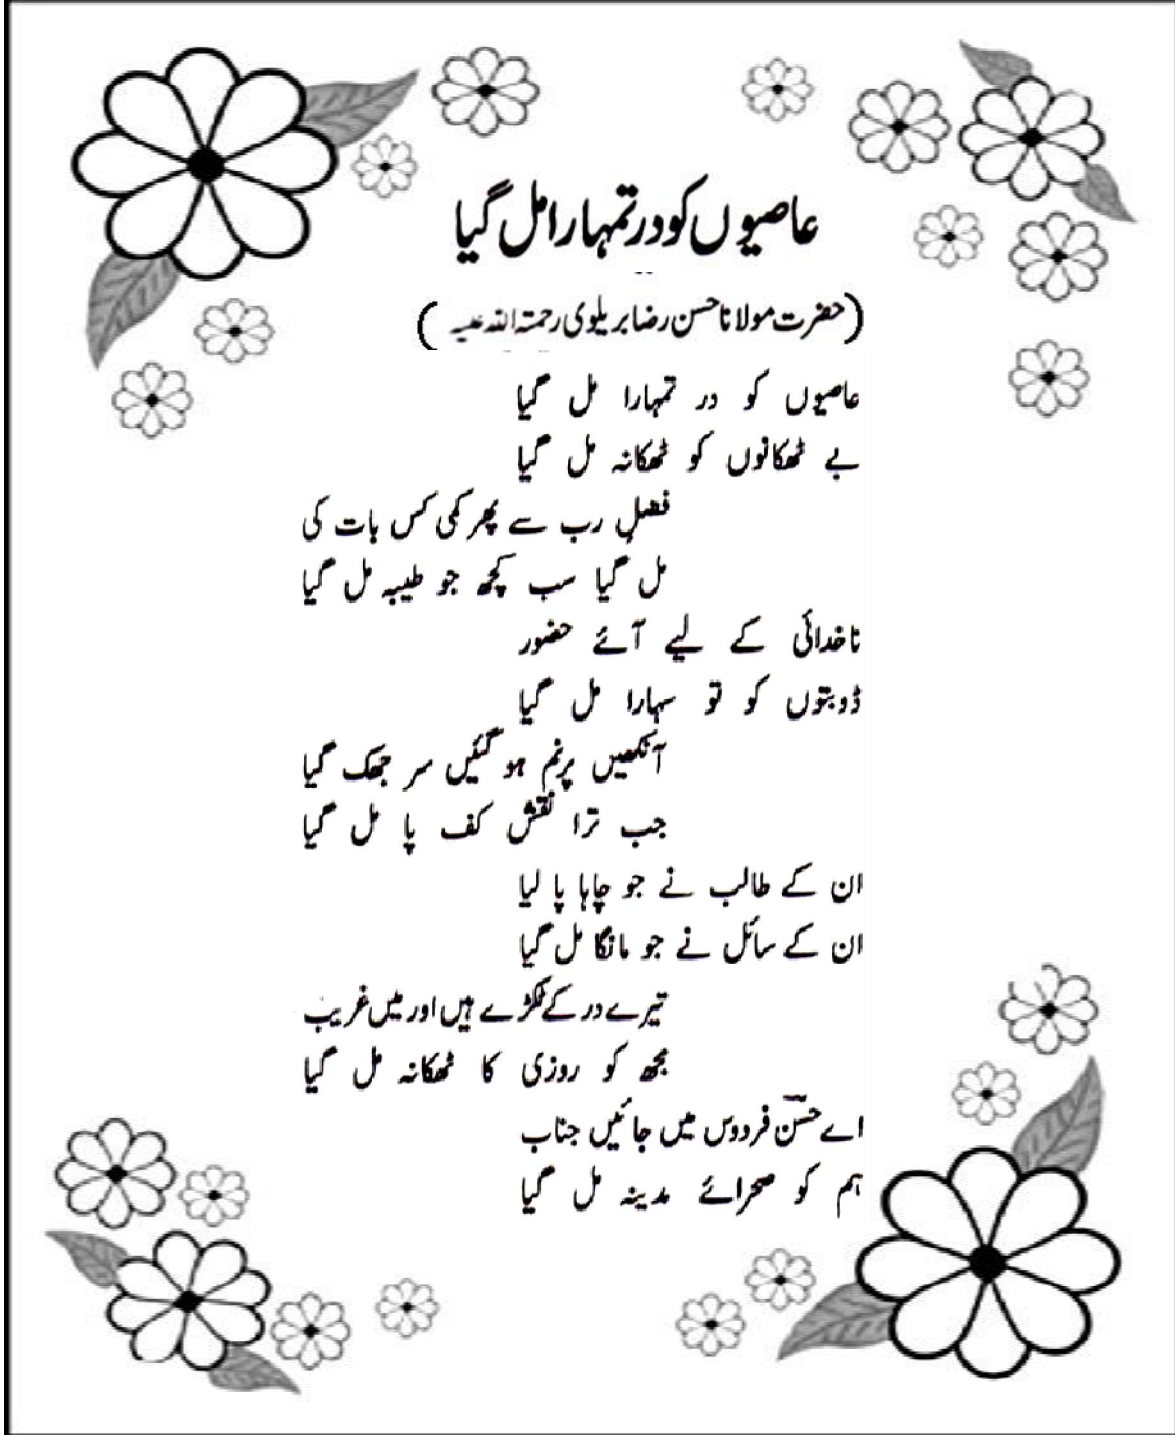 عاصیوں کو در تمہارا مل گیا
(حضرت مولانا حسن رضا بریلوی رحمتہ اللہ علیہ)
عاصیوں کو در تمہارا مل گیا
بے ٹھکانوں کو ٹھکانہ مل گیا
فضلِ رب سے پھر کمی کس بات کی
مل گیا سب کچھ جو طیبہ مل گیا
ناخدائی کے لیے آئے حضور
ڈوبتوں کو تو سہارا مل گیا
آنکھیں پرنم ہو گئیں سر جھک گیا
جب ترا نقش کف پا مل گیا
ان کے طالب نے جو چاہا پا لیا
ان کے سائل نے جو مانگا مل گیا
تیرے در کے ٹکڑے ہیں اور میں غریب
مجھ کو روزی کا ٹھکانہ مل گیا
اے حسؔن فردوس میں جائیں جناب
ہم کو صحرائے مدینہ مل گیا